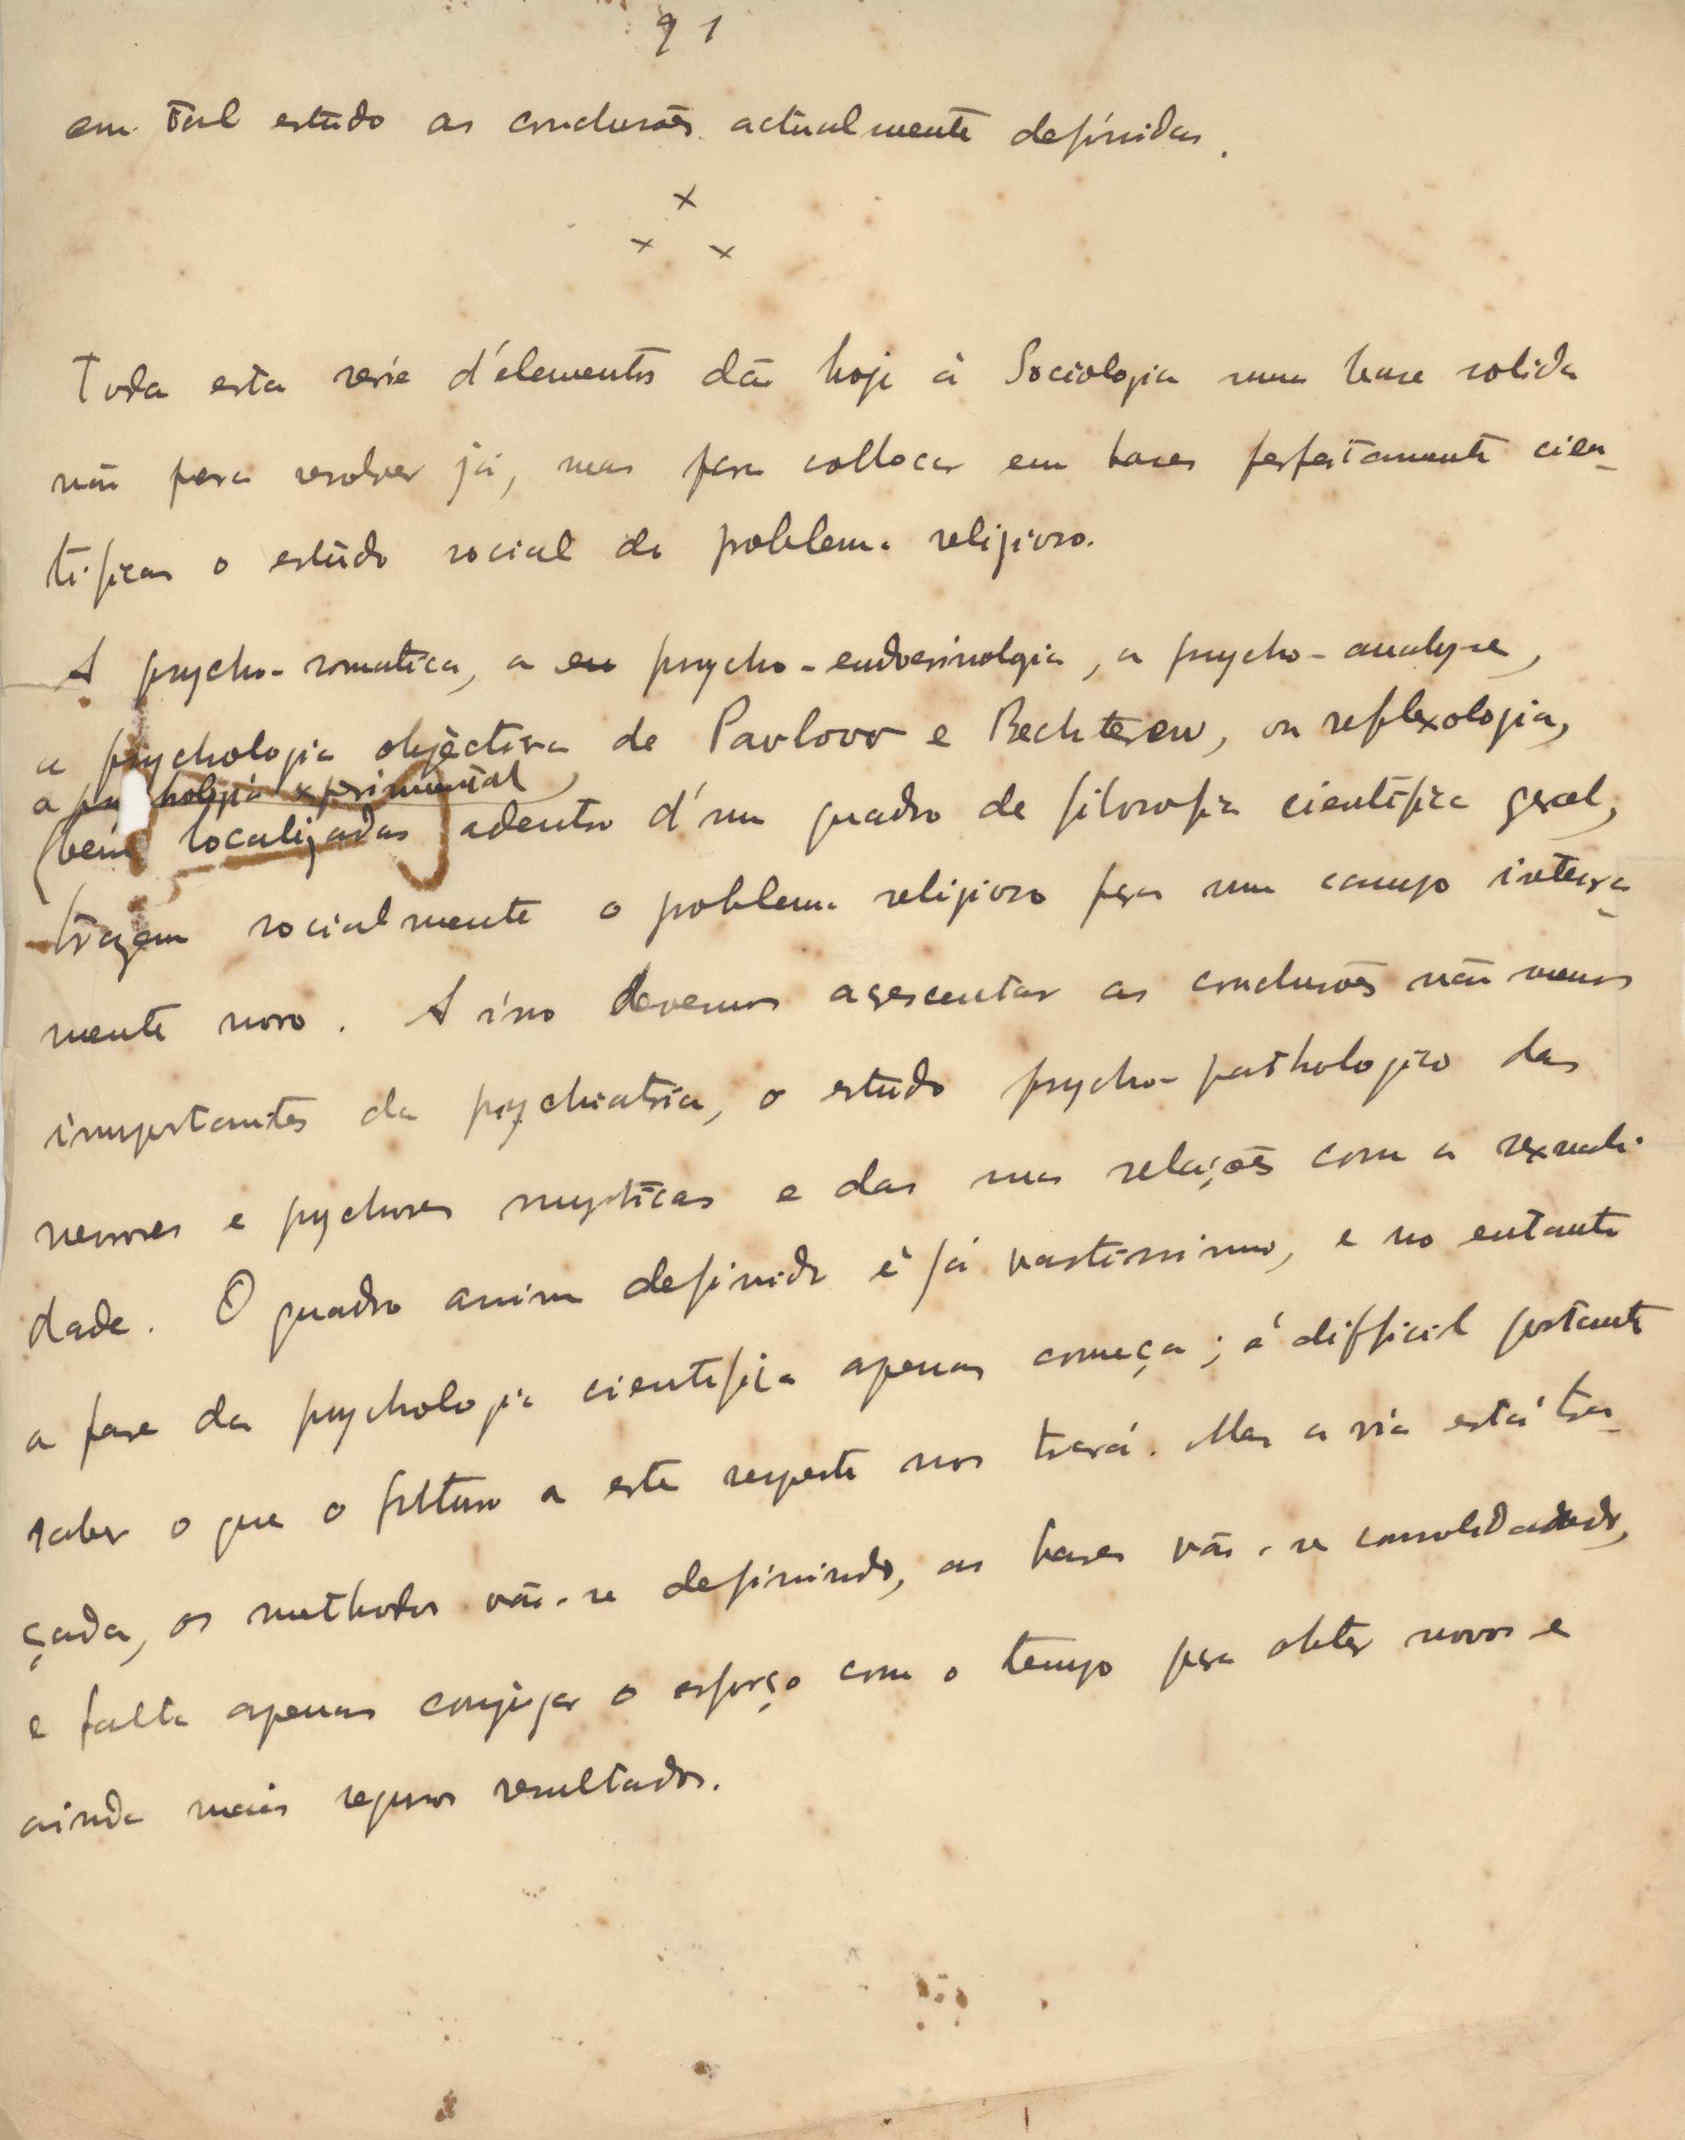 91
em tal estudo as conclusões actualmente definidas.
x
x x
Toda esta serie d'elementos dão hoje á Sociologia uma base solida
não para resolver já, mas para collocar em bases perfeitamente cien-
tificas o estudo social do problema religioso.
A psycho-somatica, a en psycho-endocrinologia, a psycho-analyse,
a psychologia objèctiva de Pavlovv e Bechterew, ou reflexologia,
a psychologia experimental,
(bem localizadas adentro d'um quadro de filosofia cientifica geral,
trazem socialmente o problema religioso para um campo inteira-
mente novo. A isso devemos acrescentar as conclusões não menos
importantes da psychiatria, o estudo psycho-pathologico das
nevroses e psychoses mysticas e das suas relações com a sexuali-
dade. O quadro assim definido é já vastissimo, e no entanto
a fase da psychologia cientifica apenas começa; é difficil portanto
saber o que o futuro a este respeito nos trará. Mas a via está tra-
çada, os methodos vão-se definindo, as bases vão-se consolidando,
e falta apenas conjugar o esforço com o tempo para obter novos e
ainda mais seguros resultados.